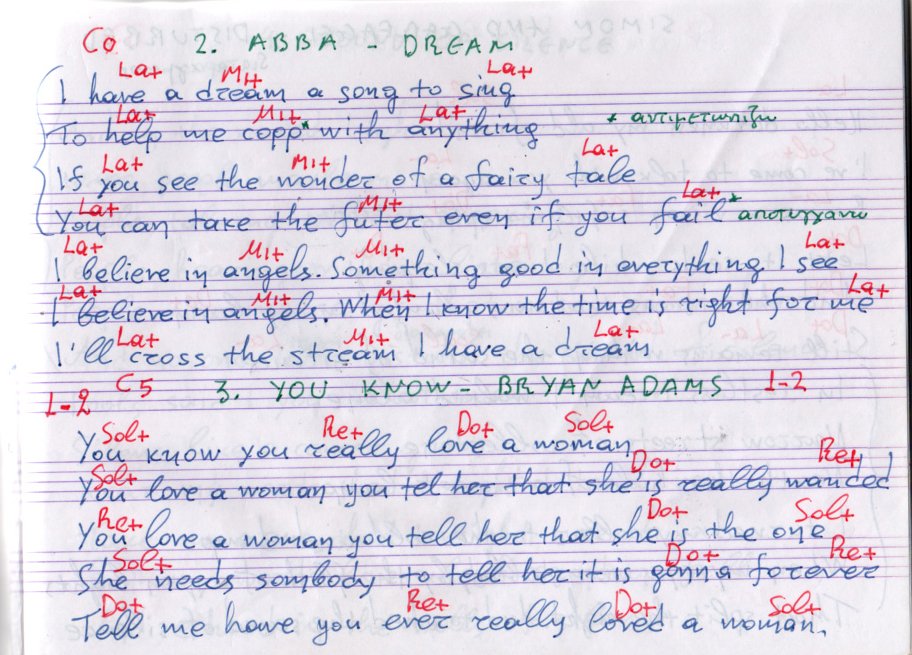 Co 2. ABBA - DREAM
La+ Mi+ La+
I have a dream a song to sing
La+ Mi+ La+
To help me copp* with anything * αντιμετωπιζω
La+ Mi+ La+
If you see the wonder of a fairy tale
La+ Mi+ La+
You can take the futer even if you fail* αποτυγχανω
La+ Mi+ Mi+ La+
I believe in angels. Something good in everything I see
La+ Mi+ Mi+ La+
I believe in angels. When I know the time is right for me
La+ Mi+ La+
I'll cross the stream I have a dream
1-2 C5 3. YOU KNOW - BRYAN ADAMS 1-2
Sol+ Re+ Do+ Sol+
You know you really love a woman
Sol+ Do+ Re+
You love a woman you tel her that she is really wanded
Re+ Do+ Sol+
You love a woman you tell her that she is the one
Sol+ Do+ Re+
She needs sombody to tell her it is gonna forever
Do+ Re+ Do+ Sol+
Tell me have you ever really loved a woman.